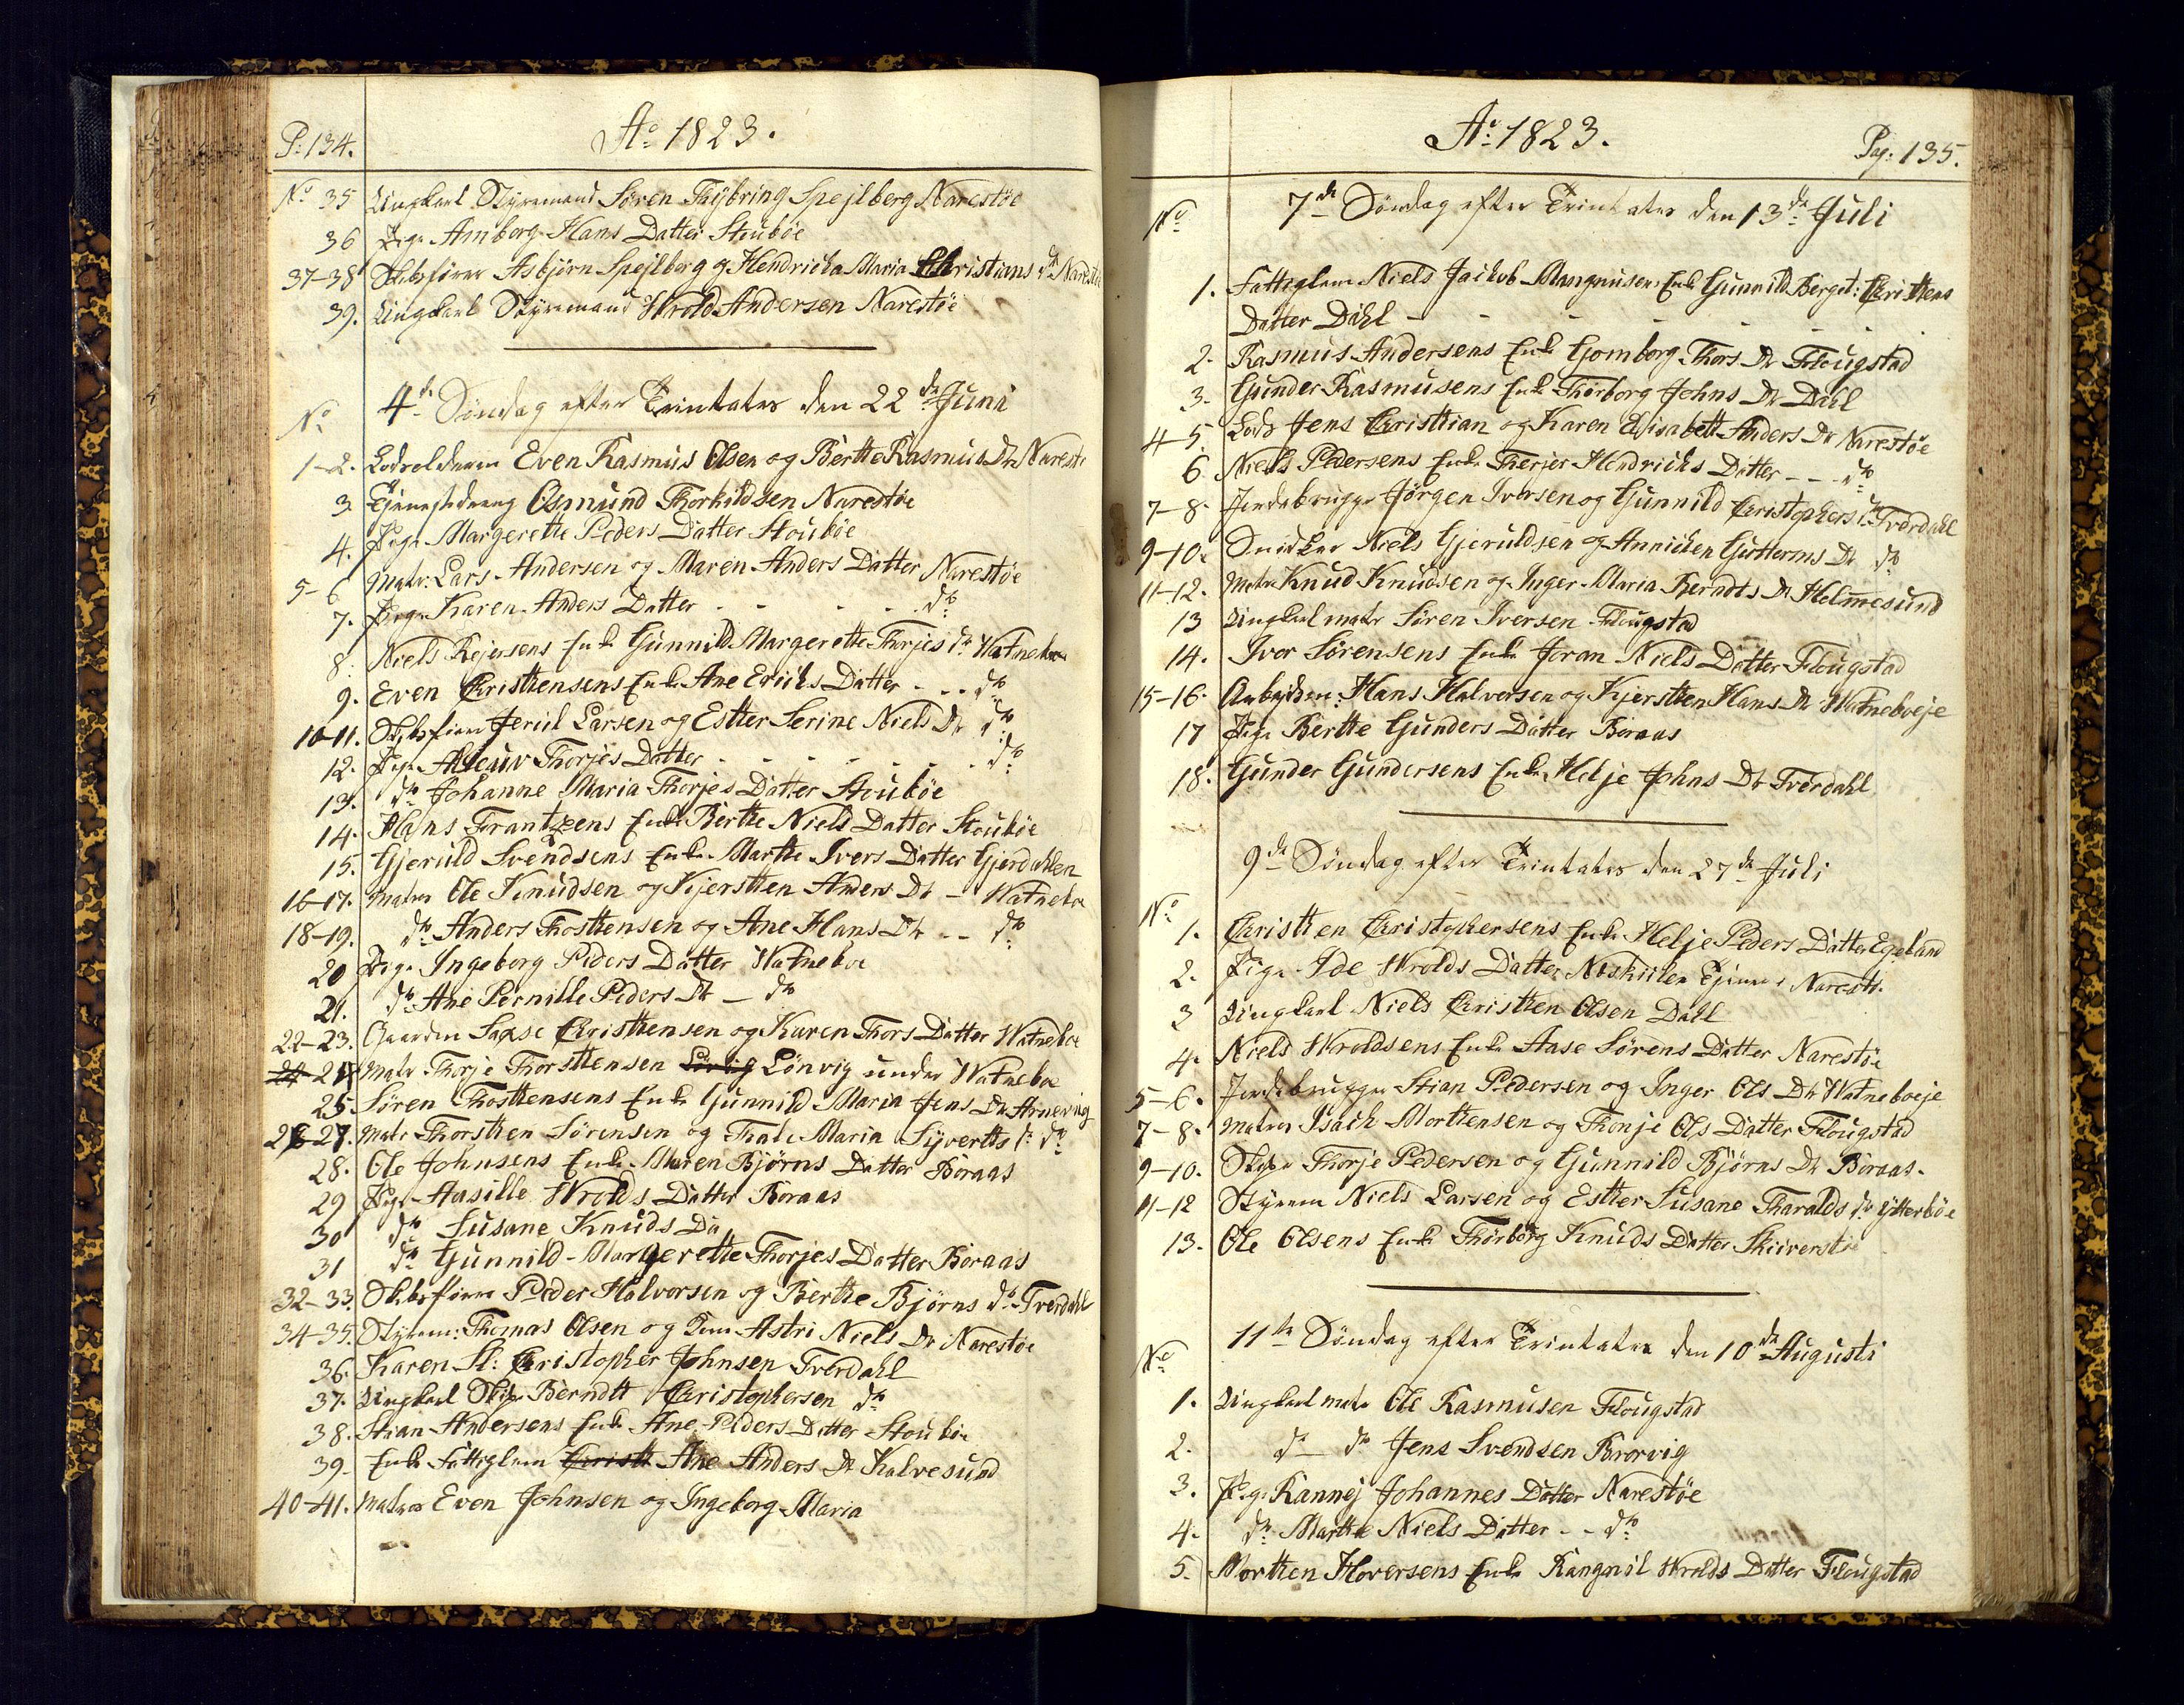 P: 134.
Ao 1823.
No 35 Ungkarl Styremand Søren Thÿbring Spejlberg Narestøe
36 Pige Amborg Hans Datter Stoubøe
37-38 Skibsfører Asbjørn Spejlberg og Hendricka Maria Christians Dr Narestøe
39. Ungkarl Styremand Wrold Andersen Narestøe
4de Søndag efter Trinitates den 22de Juni
No
1-2. Lodsoldermn Even Rasmus Olsen og Berthe Rasmus Dr Narestø
3 Tjenestedreng Osmund Thorkildsen Narestøe
4. Pige Margerette Peders Datter Stoubøe
5-6 Matr: Lars Andersen og Maren Anders Datter Narestøe
7. Pige Karen Anders Datter - - - - do
8. Niels Rejersens Enke Gunnild Margerette Thorjes Dr Watneboe
9. Even Christhensens Enke Ane Ericks Datter - - - do
10-11. Skibsfører Jerul Larsen og Esther Serine Niels Dr do
12. Pige Thorjes Datter - - - - - - do
13. do Johanne Maria Thorjes Datter Stoubøe
14. Hans Frantzens Enke Berthe Niels Datter Stoubøe
15. Gjeruld Svendsens Enke Marthe Ivers Datter Gjerdahlen
16-17. Matros Ole Knudsen og Kjersthen Anders Dr - Watneboe
18-19. do Anders Thosthensen og Ane Hans Dr - - do
20 Pige Ingeborg Peders Datter Watneboe
21. do Ane Pernille Peders Dr - do
22-23. Gaardm Saxse Christhensen og Karen Thors Datter Watneboe
24 Matr Thorje Thorsthensen Lønvig under Watneboe
25. Søren Thosthensens Enke Gunnild Maria Jens Dr Arnevig
26-27. Matr Thorsthen Sørensen og Thale Maria Syverths Dr do
28. Ole Johnsens Enke Maren Bjørns Datter Boraas
29 Pige Aasille Wrolds Datter Boraas
30 do Susane Knuds Da
31 do Gunnild Margerette Thorjes Datter Boraas
32-33. Skibsfører Peder Halvorsen og Berthe Bjørns Dr Tverdahl
34-35. Styrem: Thomas Olsen og Astri Niels Dr Narestøe
36. Karen Sl: Christopher Johnsen Tverdahl
37. Ungkarl Skipr Berndtt Christophersen do
38. Stian Andersens Enke Ane Peders Datter Stoubøe
39. Enke Fattiglem Christh Ane Anders Dr Kalvesund
40-41. Matros Even Johnsen og Ingeborg Maria
Ao 1823.
Pag: 135.
7de Søndag efter Trinitates den 13de Juli
No
1. Fattiglem Niels Jackob Mangnusens Enke Gunnild Bergit: Christhens
Datter Dahl - - - - - - -
2. Rasmus Andersens Enke Gomborg Thors Dr Flougstad
3. Gunder Rasmusens Enke Thorborg Johns Dr Dahl
4-5. Lods Jens Christhian og Karen Elisabett Anders Dr Narestøe
6. Niels Pedersens Enke Therjer Hendricks Datter - - - do
7-8. Jordebrugge Jørgen Iversen og Gunnild Christophers Dr Tverdahl
9-10. Snidker Niels Gjeruldsen og Annichen Gutterms Dr do
11-12. Matr Knud Knudsen og Inger Maria Berndts Dr Helmesund
13 Ungkarl matr Søren Iversen Flougstad
14. Ivor Sørensens Enke Joran Niels Datter Flougstad
15-16. Arbejdsm: Hans Halvorsen og Kjersthen Hans Dr Watneboeje
17 Pige Berthe Gunders Datter Boraas
18. Gunder Gundersens Enke Helje Johns Dr Tverdahl
9de Søndag efter Trinitates den 27de Juli
No
1. Christhen Christophersens Enke Helje Peders Datter Egeland
2. Pige Ide Wrolds Datter Neskilen Tjener i Narestø.
3 Ungkarl Niels Christhen Olsen Dahl
4. Niels Wroldsens Enke Aase Sørens Datter Narestøe
5-6. Jordebrugger Stian Pedersen og Inger Ols Dr Watneboeje
7-8. Matros Isach Morthensen og Thonje Ols Datter Flougstad
9-10. Skipr Thorje Pedersen og Gunnild Bjørns Dr Boraas.
11-12 Styrem Niels Larsen og Esther Susane Tharalds Dr Ytterbøe
13. Ole Olsens Enke Thorborg Knuds Datter Skiverstø
11te Søndag efter Trinitates den 10de Augusti
No
1. Ungkarl matr Ole Rasmusen Flougstad
2. do do Jens Svendsen Brorvig
3. Pige Rannej Johannes Datter Narestøe
4. do Marthe Niels Datter - - do
5. Morthen Hoversens Enke Rangnil Wrolds Datter Flougstad